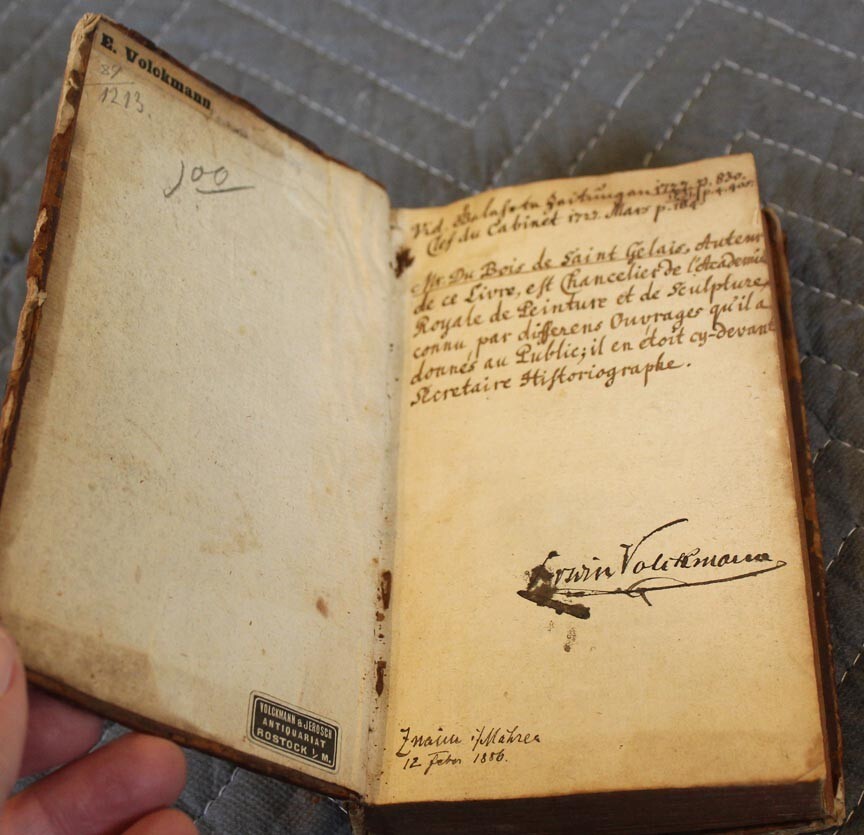 E. Volckmann
89
1213.
100
VOLCKMANN & JEROSCH
ANTIQUARIAT
ROSTOCK i/M.
Vid. Zeitungen 1727. p. 830.
Clef du Cabinet 1727. Mars p. 184.
Mr. Du Bois de Saint Gelais, Auteur
de ce Livre, est Chancelier de l'Academie
Royale de Peinture et de Sculpture,
connu par differens Ouvrages qu'il a
donnés au Public; il en étoit cy-devant
Secretaire Historiographe.
Erwin Volckmann
Znaim i/Mähren
12 Feber 1886.